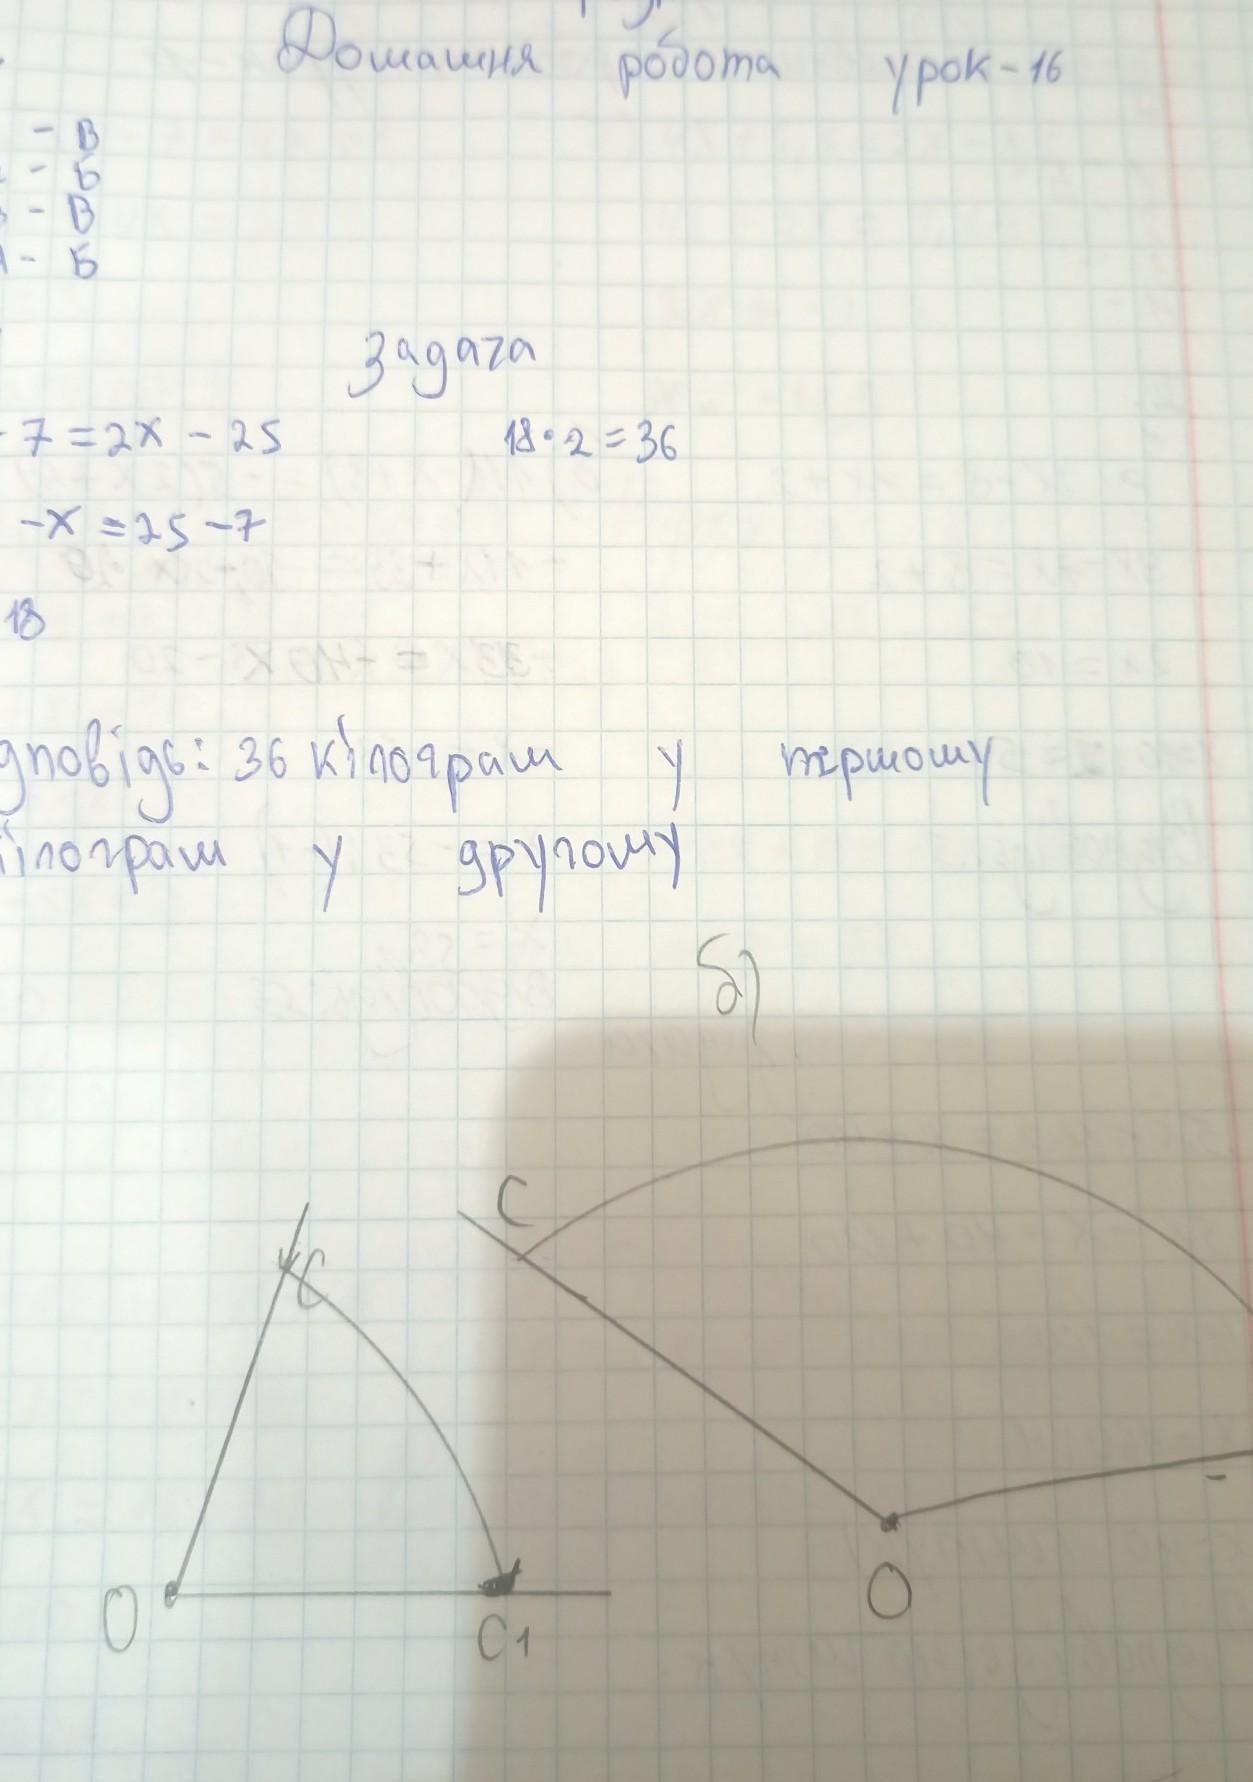 Домашня робота урок-16
- В
- Б
- В
- Б
Задача
7 = 2x - 25 18·2=36
-x = 25 -7
18
дповідь: 36 кілограм у першому
ілограм у другому
б)
C
C
O
C1
O